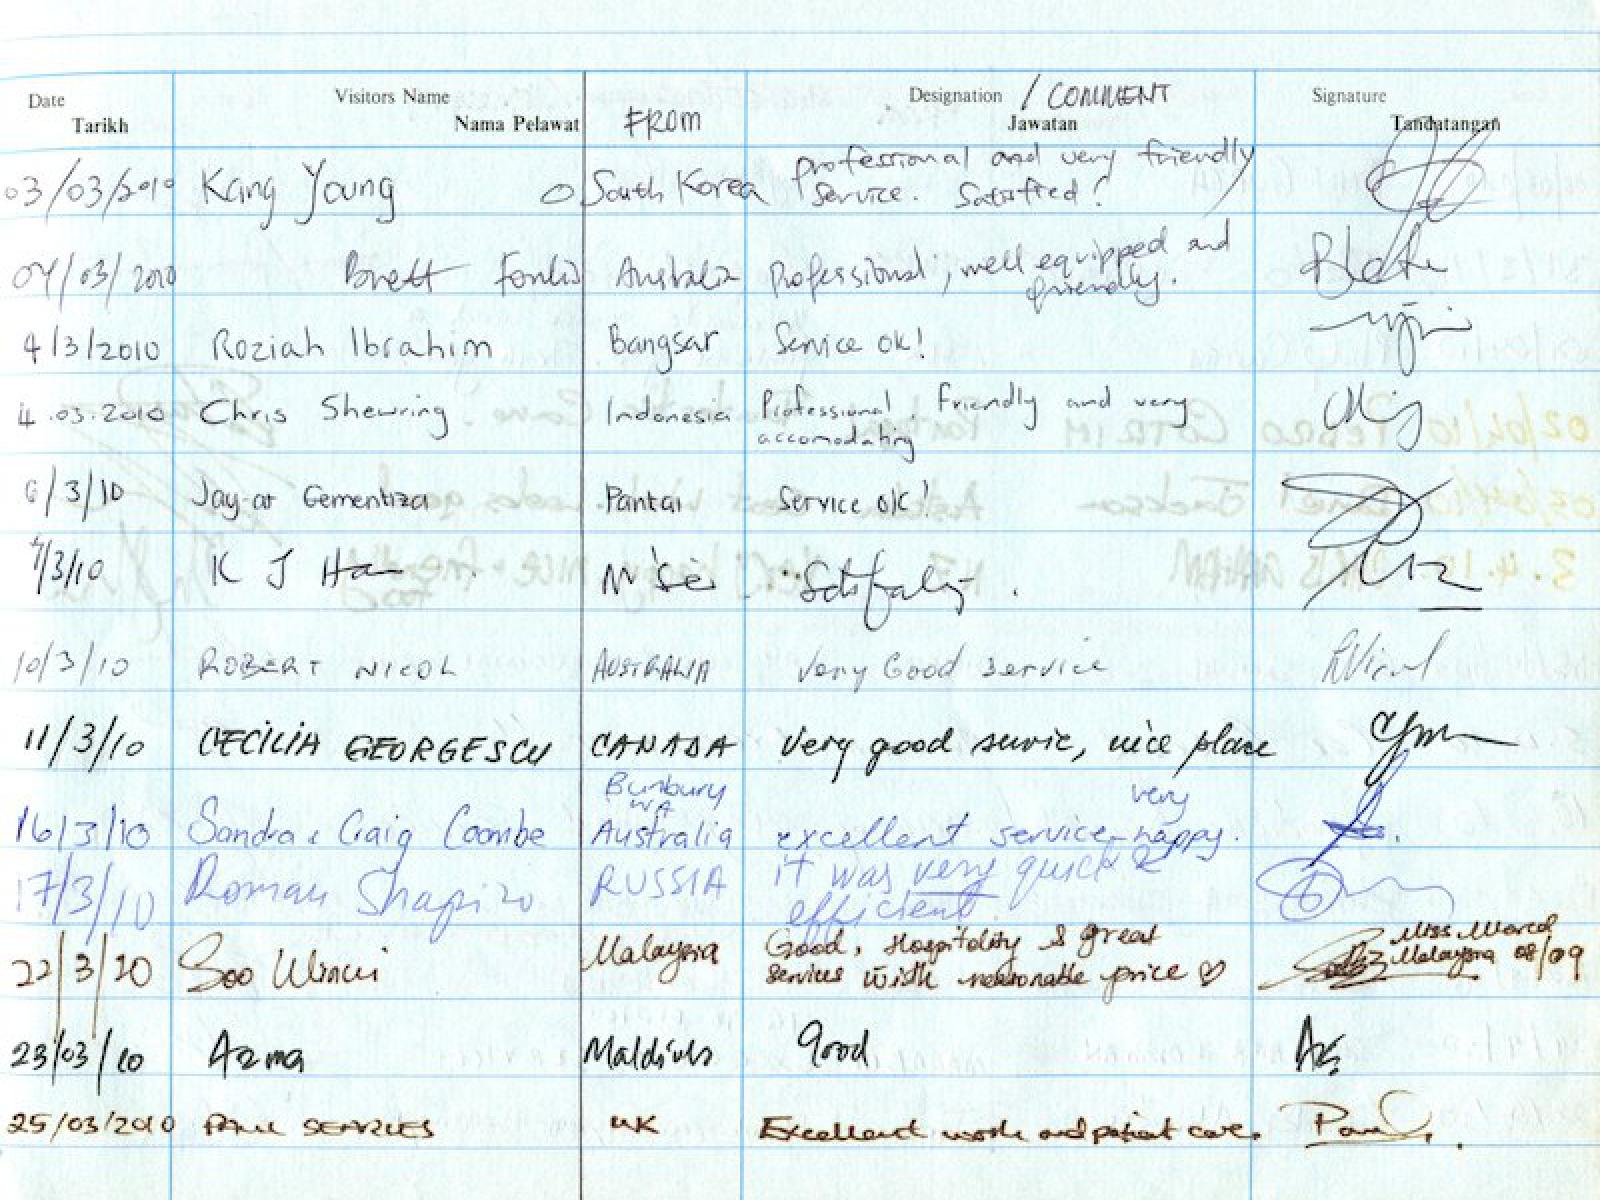 Date Visitors Name Designation / COMMENT Signature
Tarikh Nama Pelawat FROM Jawatan Tandatangan
03/03/2010 Kang Young South Korea professional and very friendly
Service. Satisfied!
04/03/2010 Brett Australia Professional, well equipped and
friendly.
4/3/2010 Roziah Ibrahim Bangsar Service ok!
4.03.2010 Chris Shewring Indonesia Professional, Friendly and very
accomodating
6/3/10 Jay-ar Gementiza Pantai Service ok!
7/3/10 K J
10/3/10 ROBERT NICOL AUSTRALIA Very Good Service
11/3/10 CECILIA GEORGESCU CANADA Very good servic, nice place
Bunbury
WA very
16/3/10 Sandra & Craig Coombe Australia excellent service - happy.
17/3/10 Roman Shapiro RUSSIA it was very quick &
efficient.
22/3/20 Soo Wincci Malaysia Good, Hospitality & great Miss World
services with reasonable price ♡ Malaysia 08/09
23/03/10 Azma Maldives Good
25/03/2010 PAUL SEARLES UK Excellent work and patient care. Paul